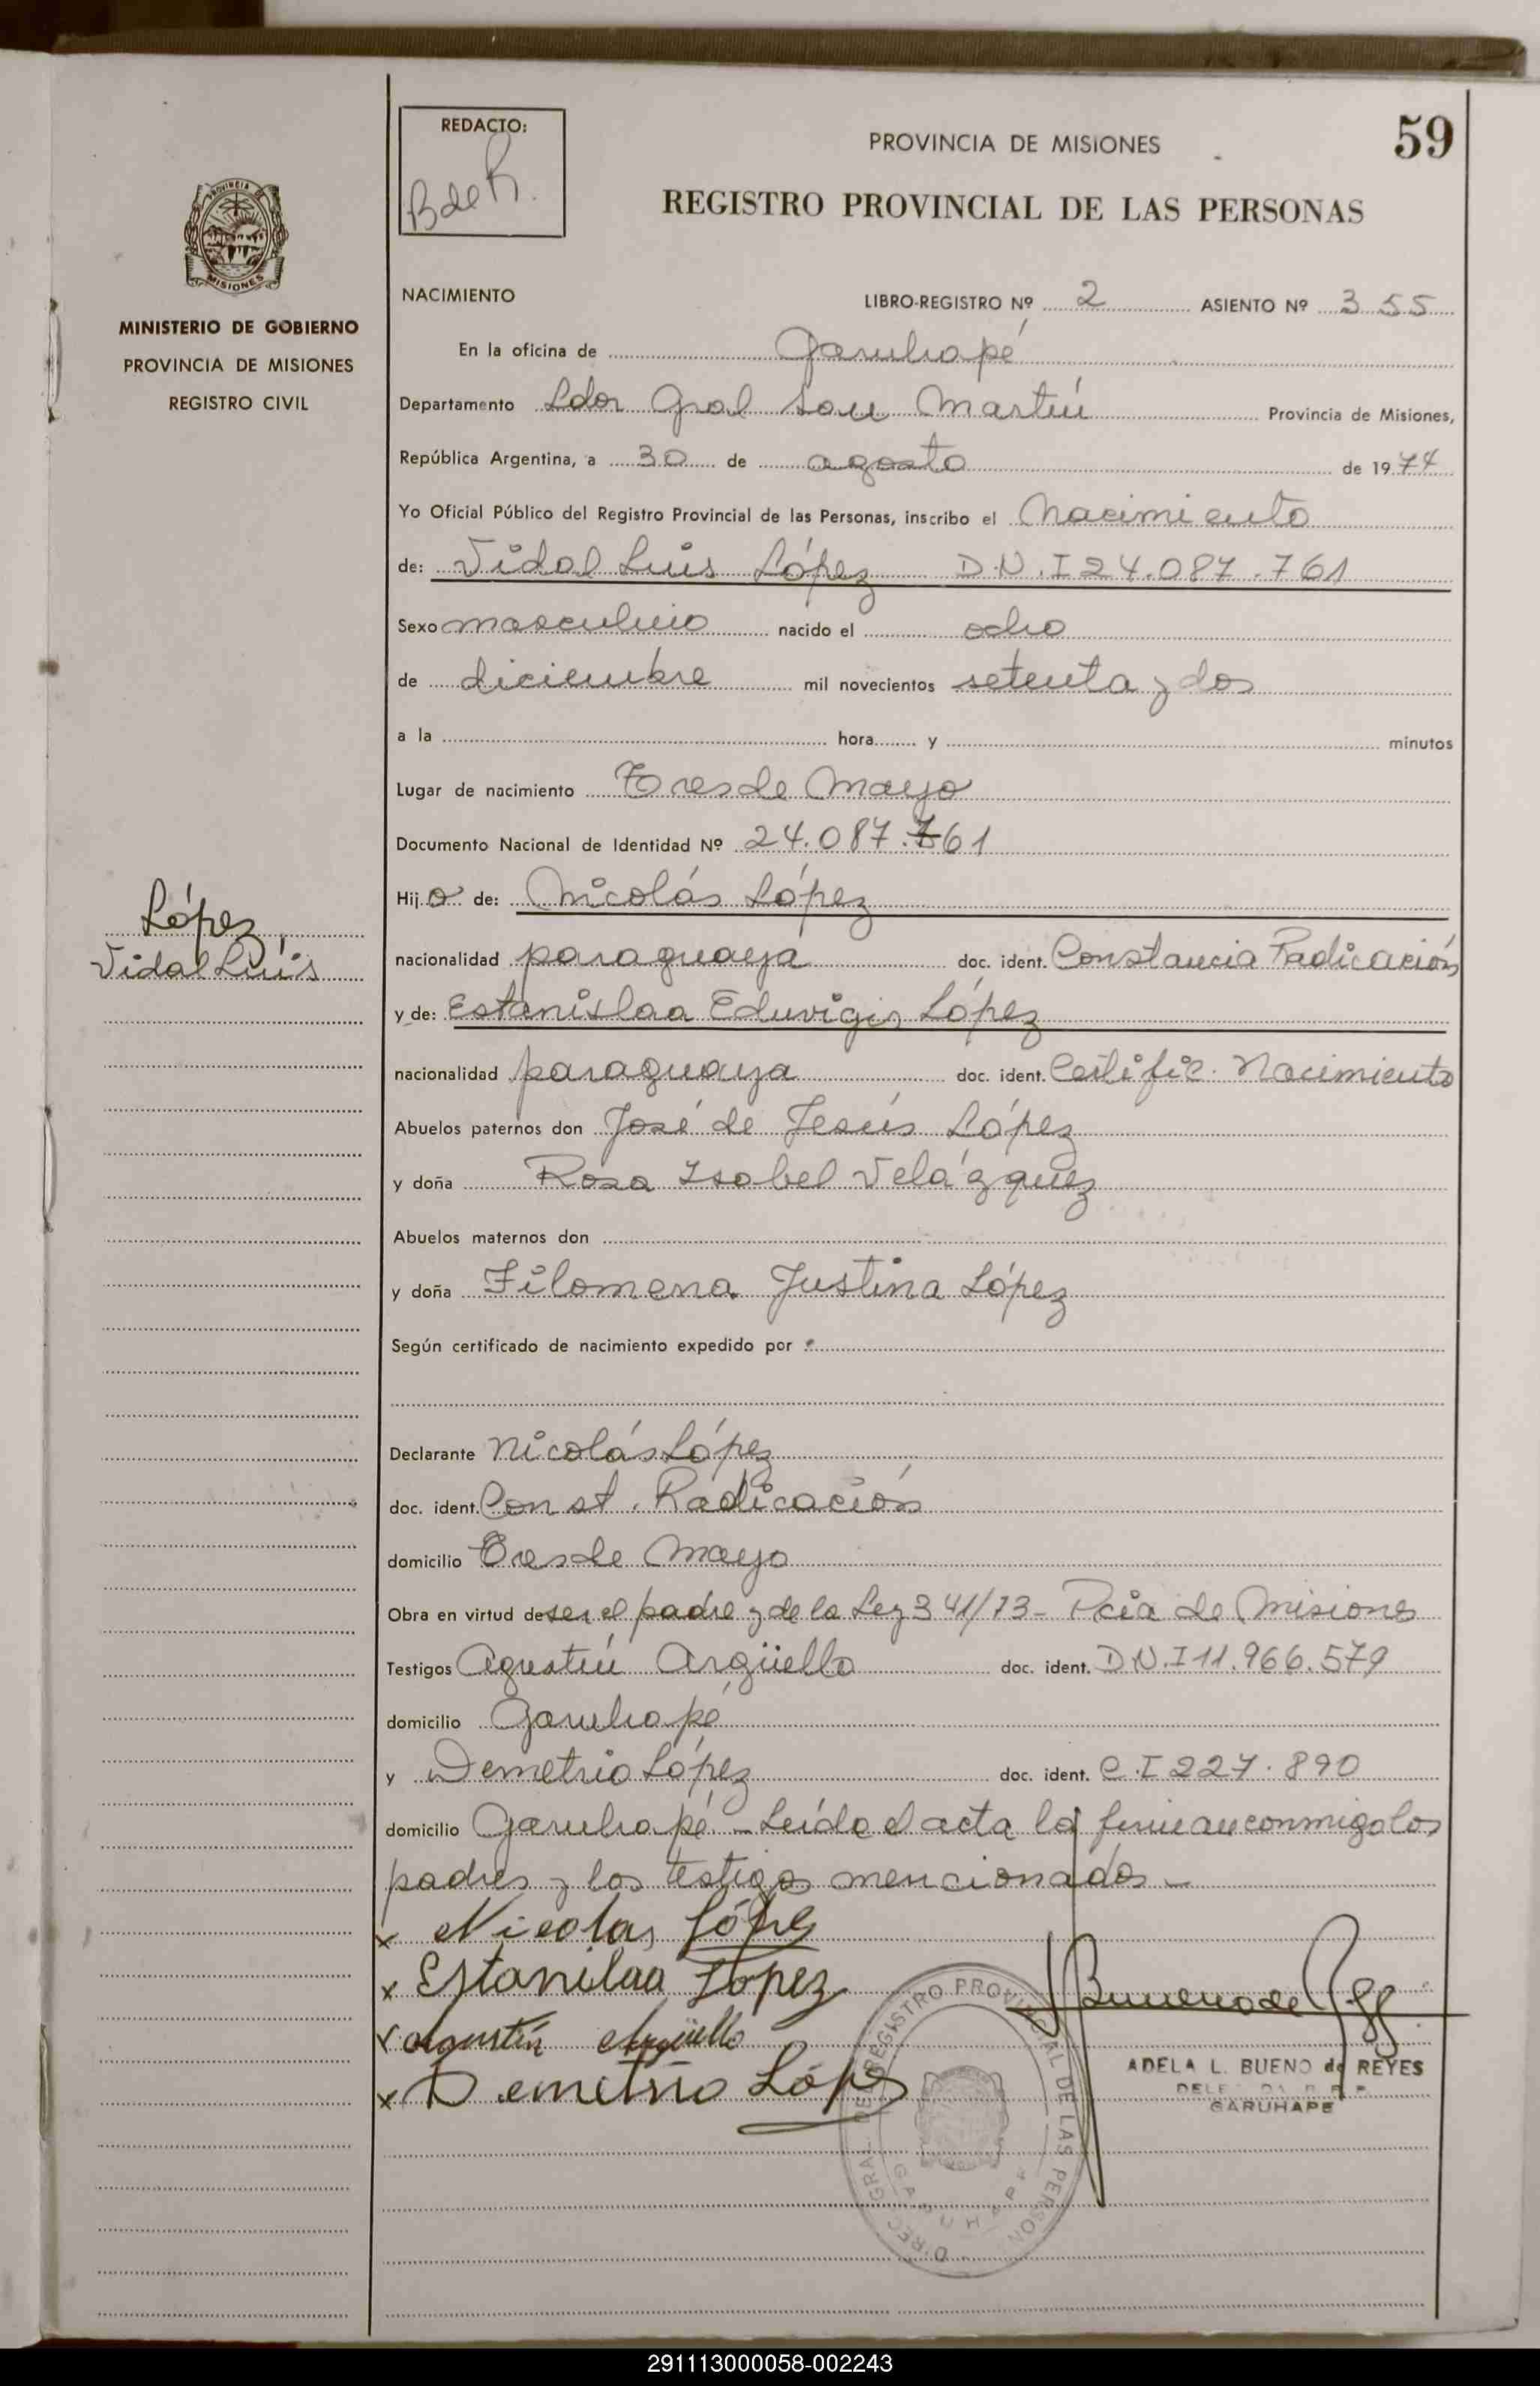 59
REDACTO:
B de R.
PROVINCIA DE MISIONES
REGISTRO PROVINCIAL DE LAS PERSONAS
PROVINCIA DE
MISIONES
MINISTERIO DE GOBIERNO
PROVINCIA DE MISIONES
REGISTRO CIVIL
NACIMIENTO LIBRO-REGISTRO Nº 2 ASIENTO Nº 355
En la oficina de Garuhapé
Departamento Ldor Gral San Martín Provincia de Misiones,
República Argentina, a 30 de agosto de 1974
Yo Oficial Público del Registro Provincial de las Personas, inscribo el Nacimiento
de: Vidal Luis López D.N.I 24.087.761
Sexo masculino nacido el ocho
de diciembre mil novecientos setenta y dos
a la hora y minutos
Lugar de nacimiento Tres de Mayo
Documento Nacional de Identidad Nº 24.087.761
Hijo de: Nicolás López
López
Vidal Luis
nacionalidad paraguaya doc. ident. Constancia Radicación
y de: Estanislaa Eduvigis López
nacionalidad paraguaya doc. ident. Certific. Nacimiento
Abuelos paternos don José de Jesús López
y doña Rosa Isabel Velázquez
Abuelos maternos don
y doña Filomena Justina López
Según certificado de nacimiento expedido por
Declarante Nicolás López
doc. ident. Const. Radicación
domicilio Tres de Mayo
Obra en virtud de ser el padre y de la Ley 341/73- Pcia de Misiones
Testigos Agustín Argüello doc. ident. D.N.I 11.966.579
domicilio Garuhapé
y Demetrio López doc. ident. C.I 227.890
domicilio Garuhapé - Leída el acta la firman conmigo los
padres y los testigos mencionados -
x Nicolas López
x Estanilaa Lopez
x Agustín Argüello
x Demetrio López
Bueno de
ADELA L. BUENO de REYES
GARUHAPE
DIREC. GRAL. DEL REGISTRO PROVINCIAL DE LAS PERSON
GARUHAPE
291113000058-002243